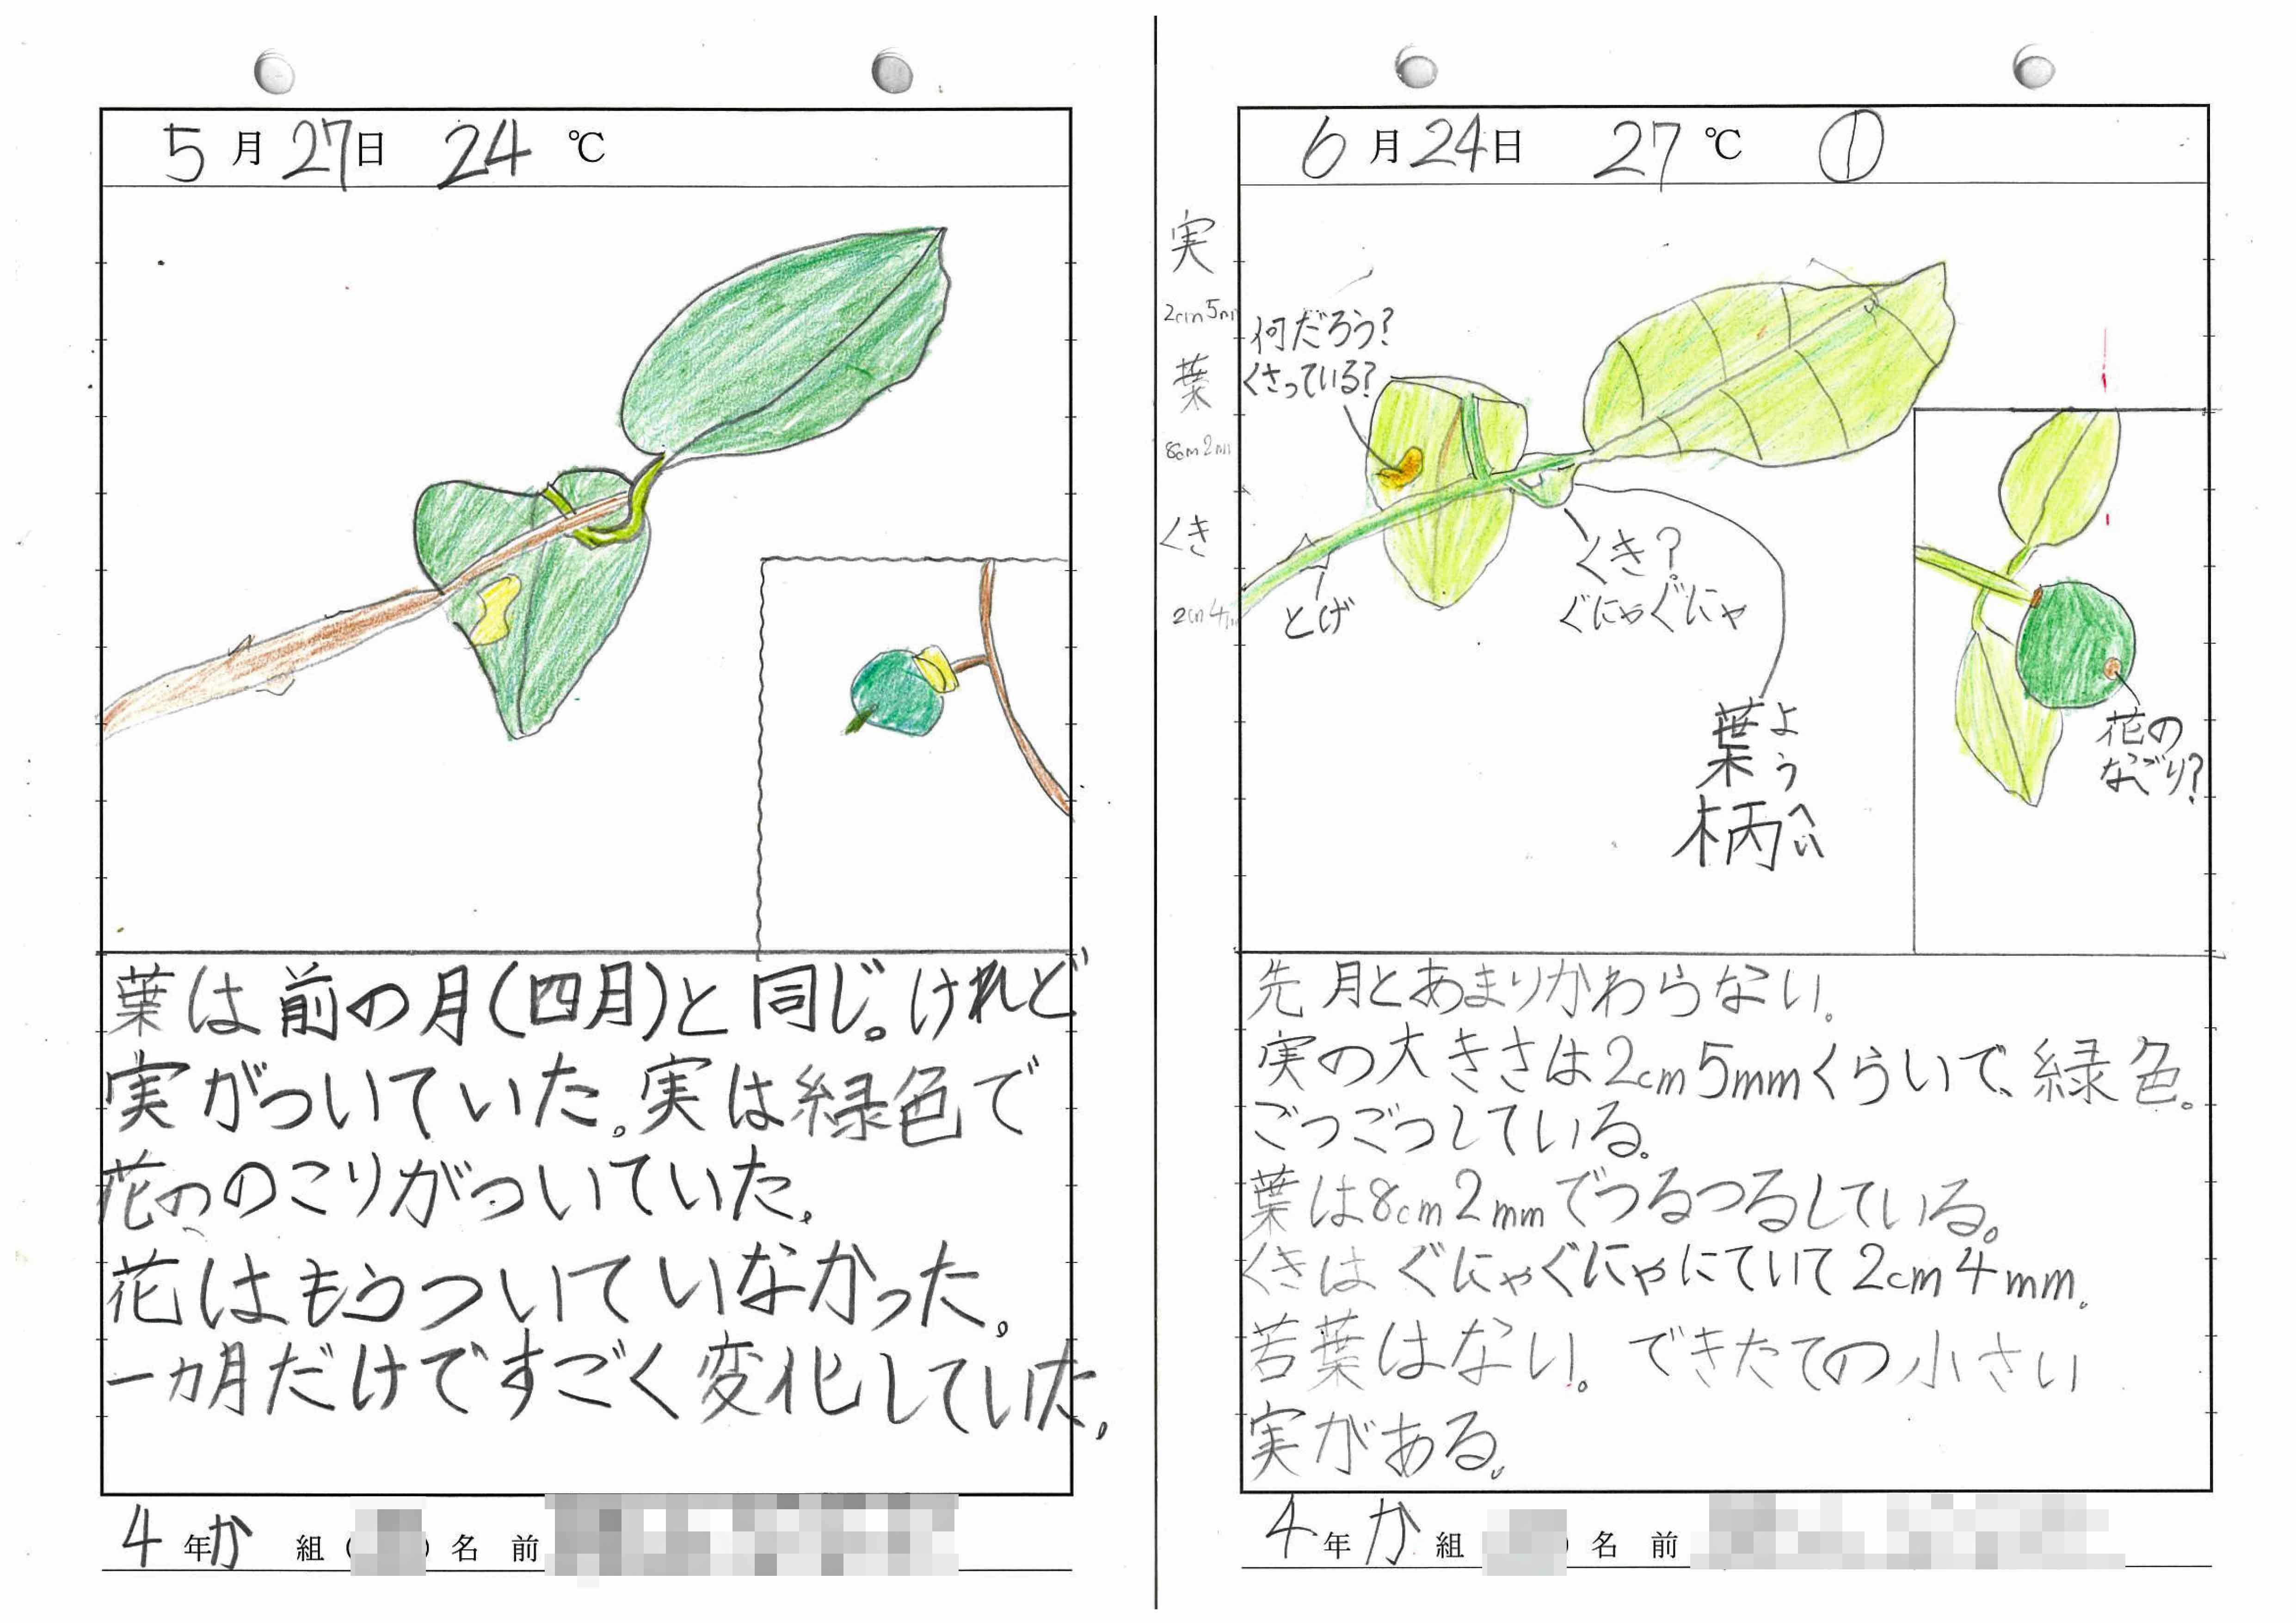 5月27日 24 ℃
葉は前の月(四月)と同じ。けれど
実がついていた。実は緑色で
花ののこりがついていた。
花はもうついていなかった。
一カ月だけですごく変化していた。
4年か 組( )名 前
6月24日 27℃ ①
実
2cm5m
葉
8cm2mm
くき
2cm4
何だろう?
くさっている?
とげ
くき?
ぐにゃぐにゃ
葉柄
ようへい
花の
なごり?
先月とあまりかわらない。
実の大きさは2cm5mmくらいで、緑色。
ごつごつしている。
葉は8cm2mmでつるつるしている。
くきはぐにゃぐにゃにていて2cm4mm。
若葉はない。できたての小さい
実がある。
4年か 組 )名 前